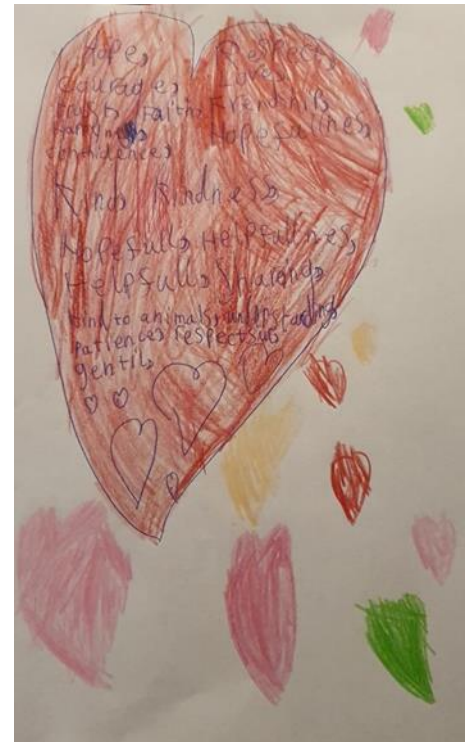 Hope, Respect,
Courage, Love,
Trust, Faith, Frendship,
Hopefullnes,
confidence,
Kind, Kindness,
Hopefull, Helpfullnes,
Helpfull, Sharing,
kind to animals,
patience, respectful,
gentil,